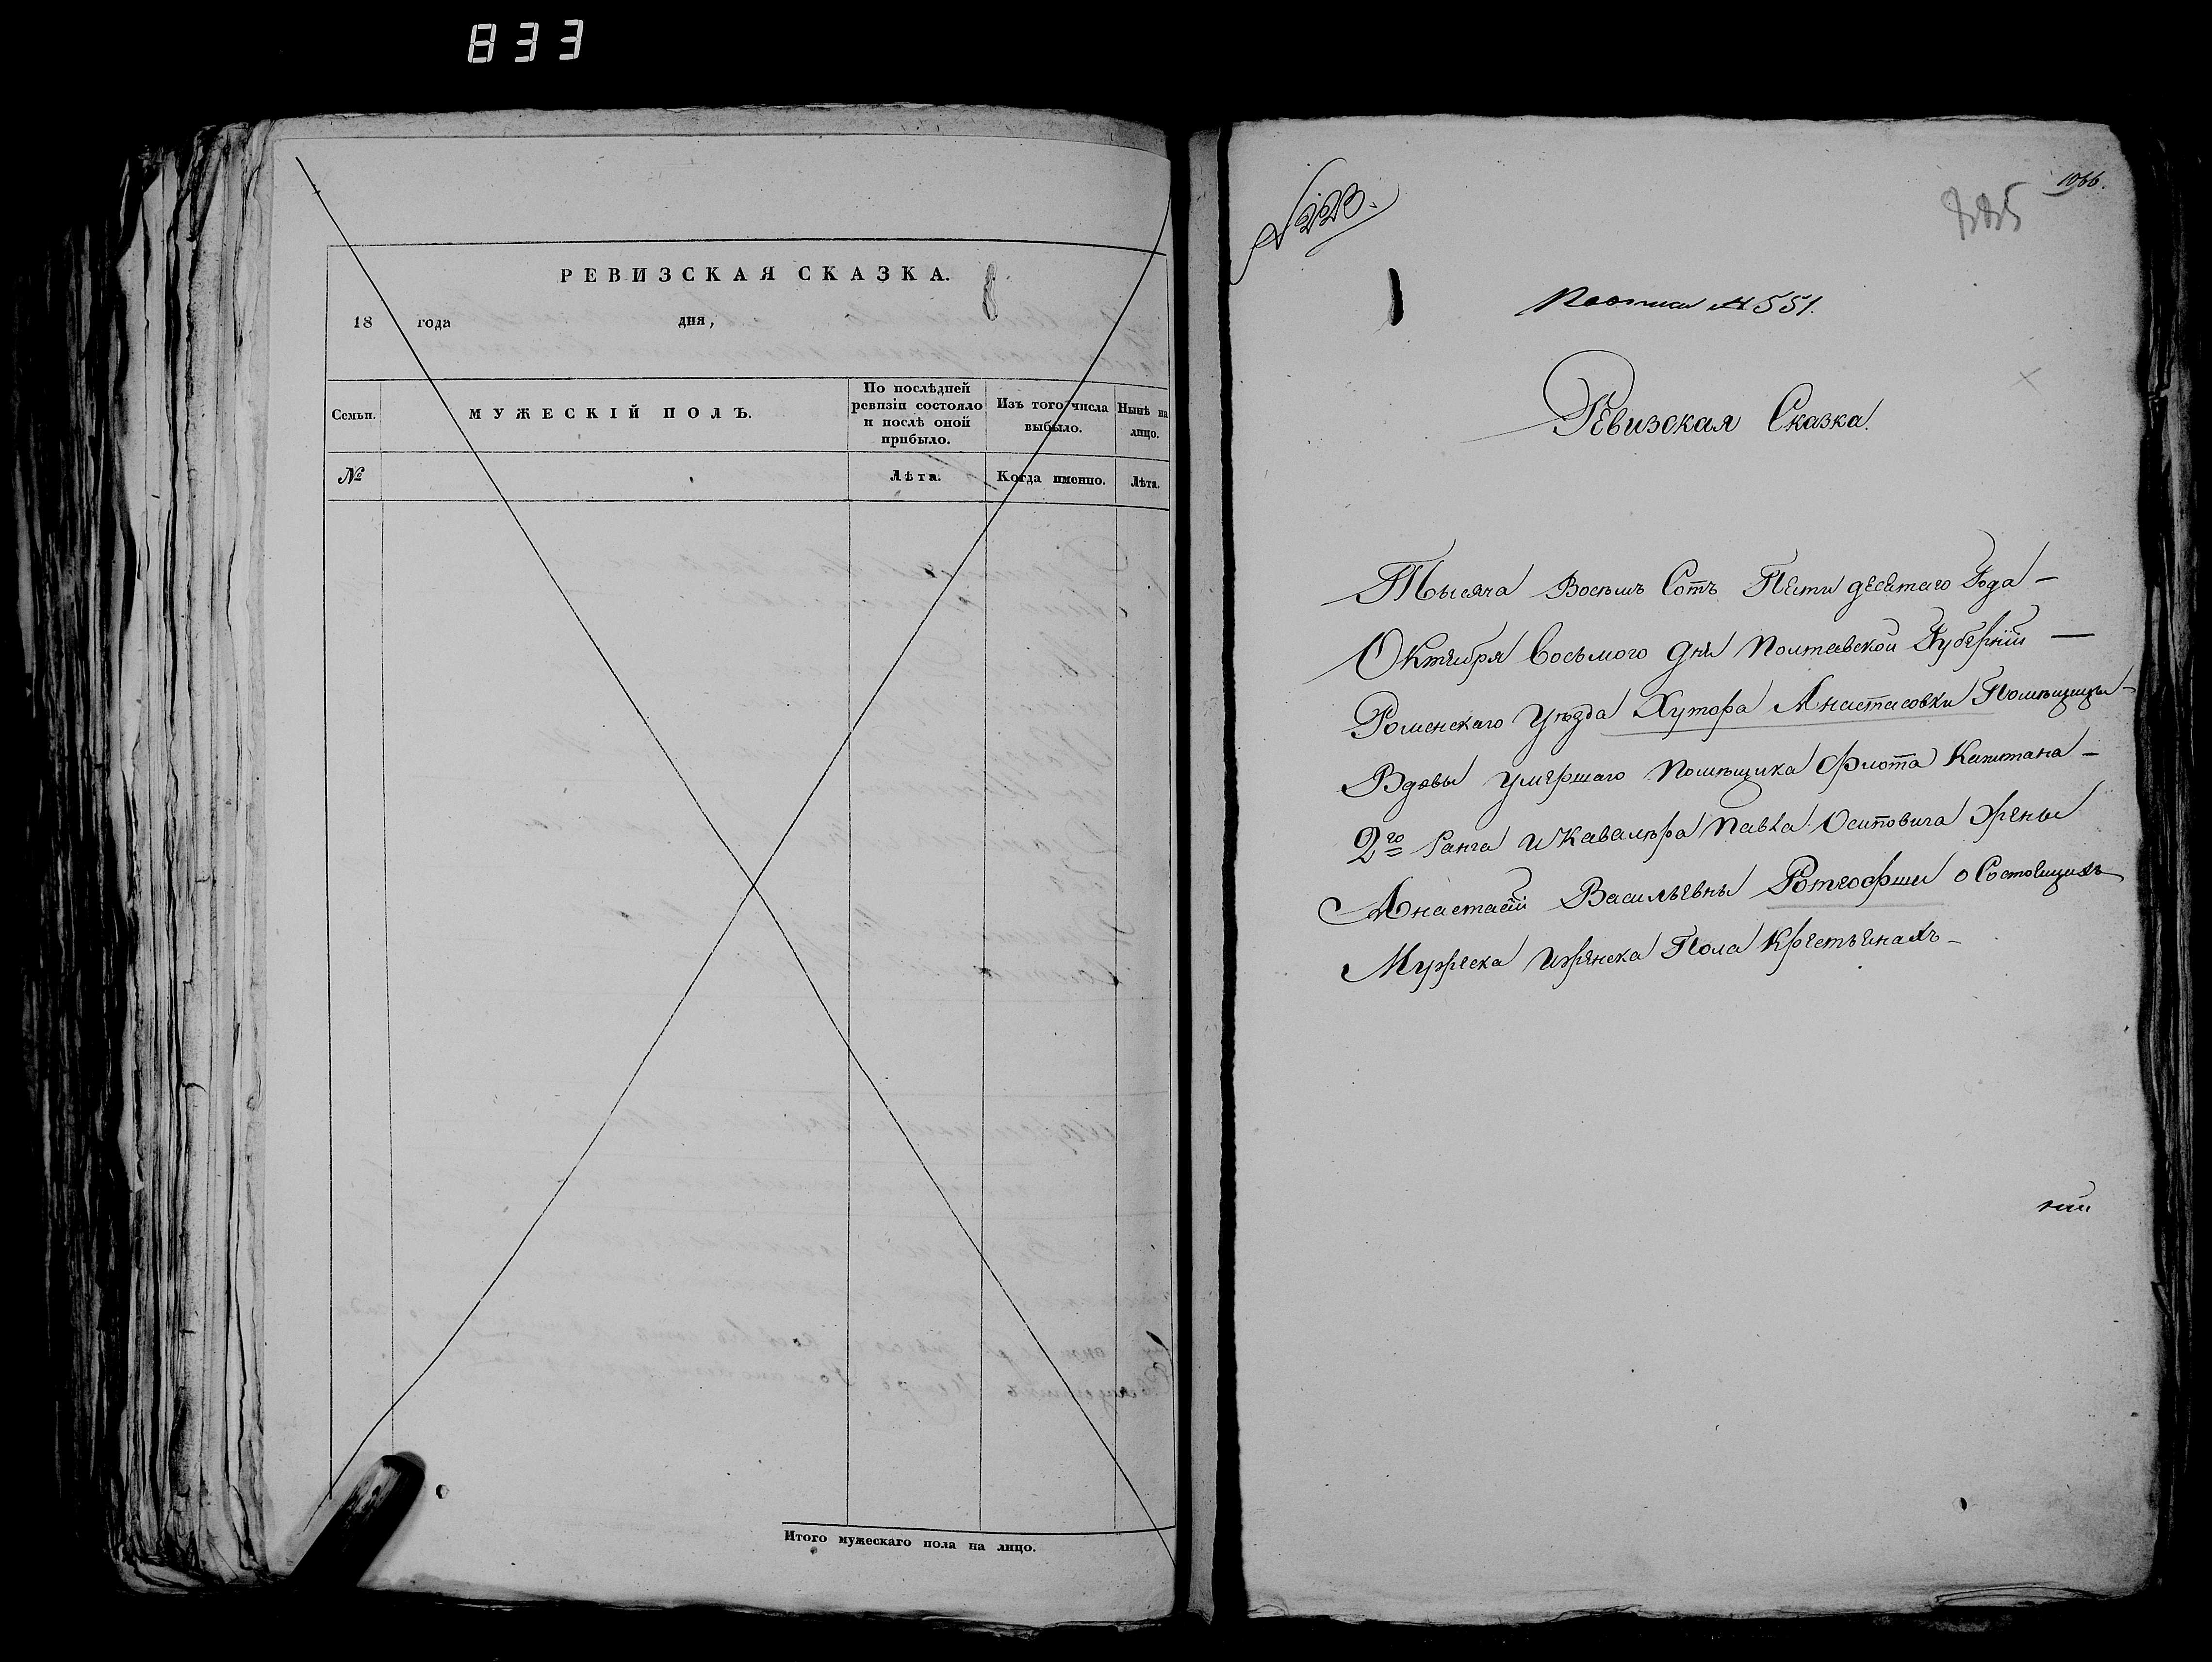 833
РЕВИЗСКАЯ СКАЗКА.
18 года дня,
Семьи.
МУЖЕСКІЙ ПОЛЪ.
По послѣдней ревизіи состояло и послѣ оной прибыло.
Изъ того числа выбыло.
Нынѣ на лицо.
№
Лѣта.
Когда именно.
Лѣта.
Итого мужескаго пола на лицо.
№ 223.
1066.
885
№ 551.
Ревизская Сказка.
Тысяча Восемъ Сотъ Пяти десятаго Года —
Октября Восьмого дня Полтавской Губерніи —
Роменскаго Уѣзда Хутора Анастасовки Помѣщицы —
Вдовы умершаго Помѣщика Флота Капитана —
2го Ранга и Кавалѣра Павла Осиповича жены
Анастасіи Васильевны Ротгофши о Состоящихъ
Мужеска и женска Пола Крестьянахъ —